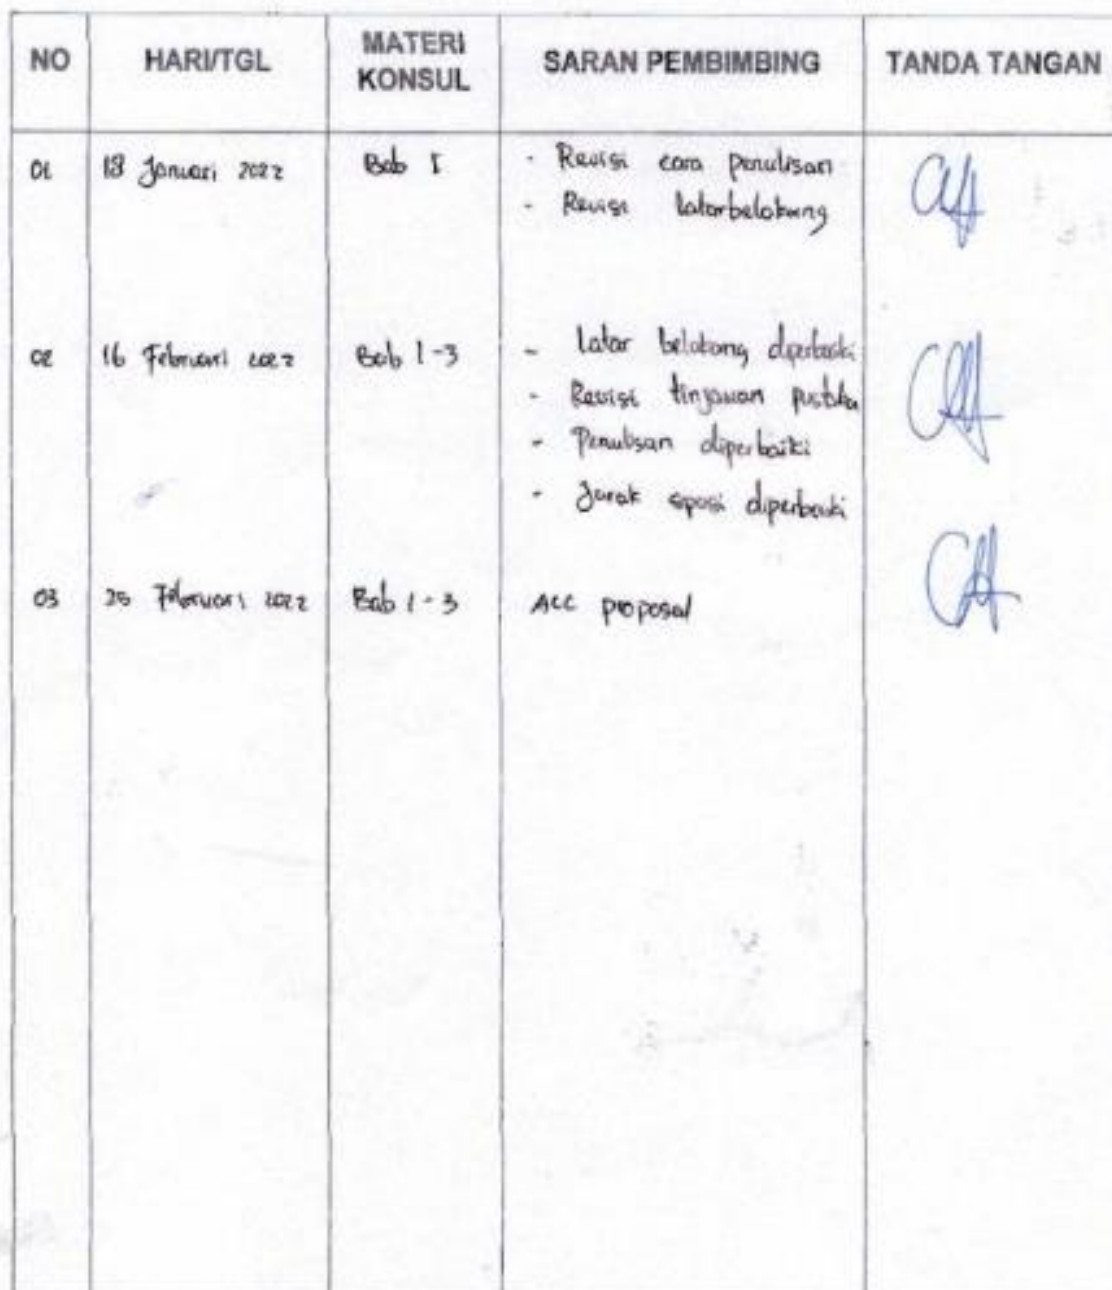 NO HARI/TGL MATERI KONSUL SARAN PEMBIMBING TANDA TANGAN
01 18 Januari 2022 Bab I - Revisi cara penulisan
- Revisi latarbelakang
02 16 Februari 2022 Bab 1-3 - Latar belakang diperbaiki
- Revisi tinjauan pustaka
- Penulisan diperbaiki
- Jarak spasi diperbaiki
03 25 Februari 2022 Bab 1-3 ACC proposal